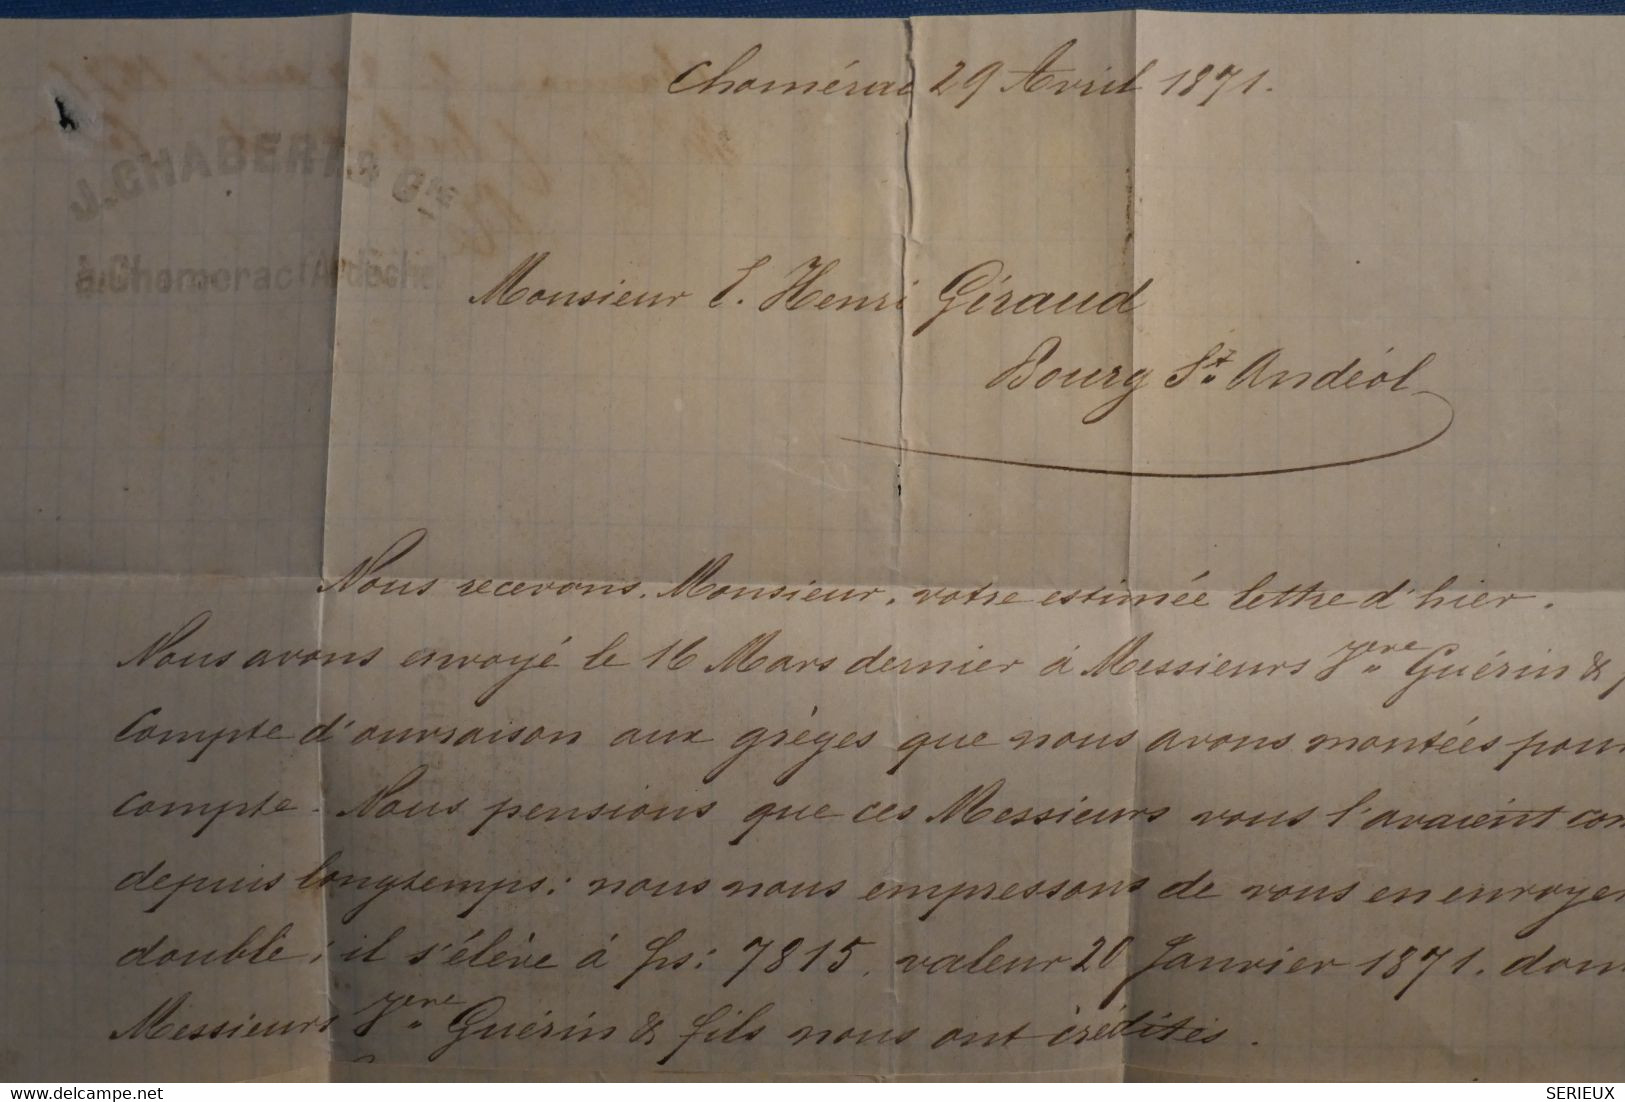 Chomérac 29 Avril 1871.
J. CHABERT & Cie
à Chomerac (Ardèche)
Monsieur E. Henri Giraud
Bourg St. Andéol
Nous recevons, Monsieur, votre estimée lettre d'hier.
Nous avons envoyé le 16 Mars dernier à Messieurs Vve Guérin &
Compte d'ouvraison aux grèges que nous avons montées pour
compte. Nous pensions que ces Messieurs vous l'avaient
depuis longtemps; nous nous empressons de vous en envoyer
double; il s'élève à frs: 7815, valeur 20 Janvier 1871. dont
Messieurs Vve Guérin & fils nous ont crédités.
SERIEUX
delcampe.net